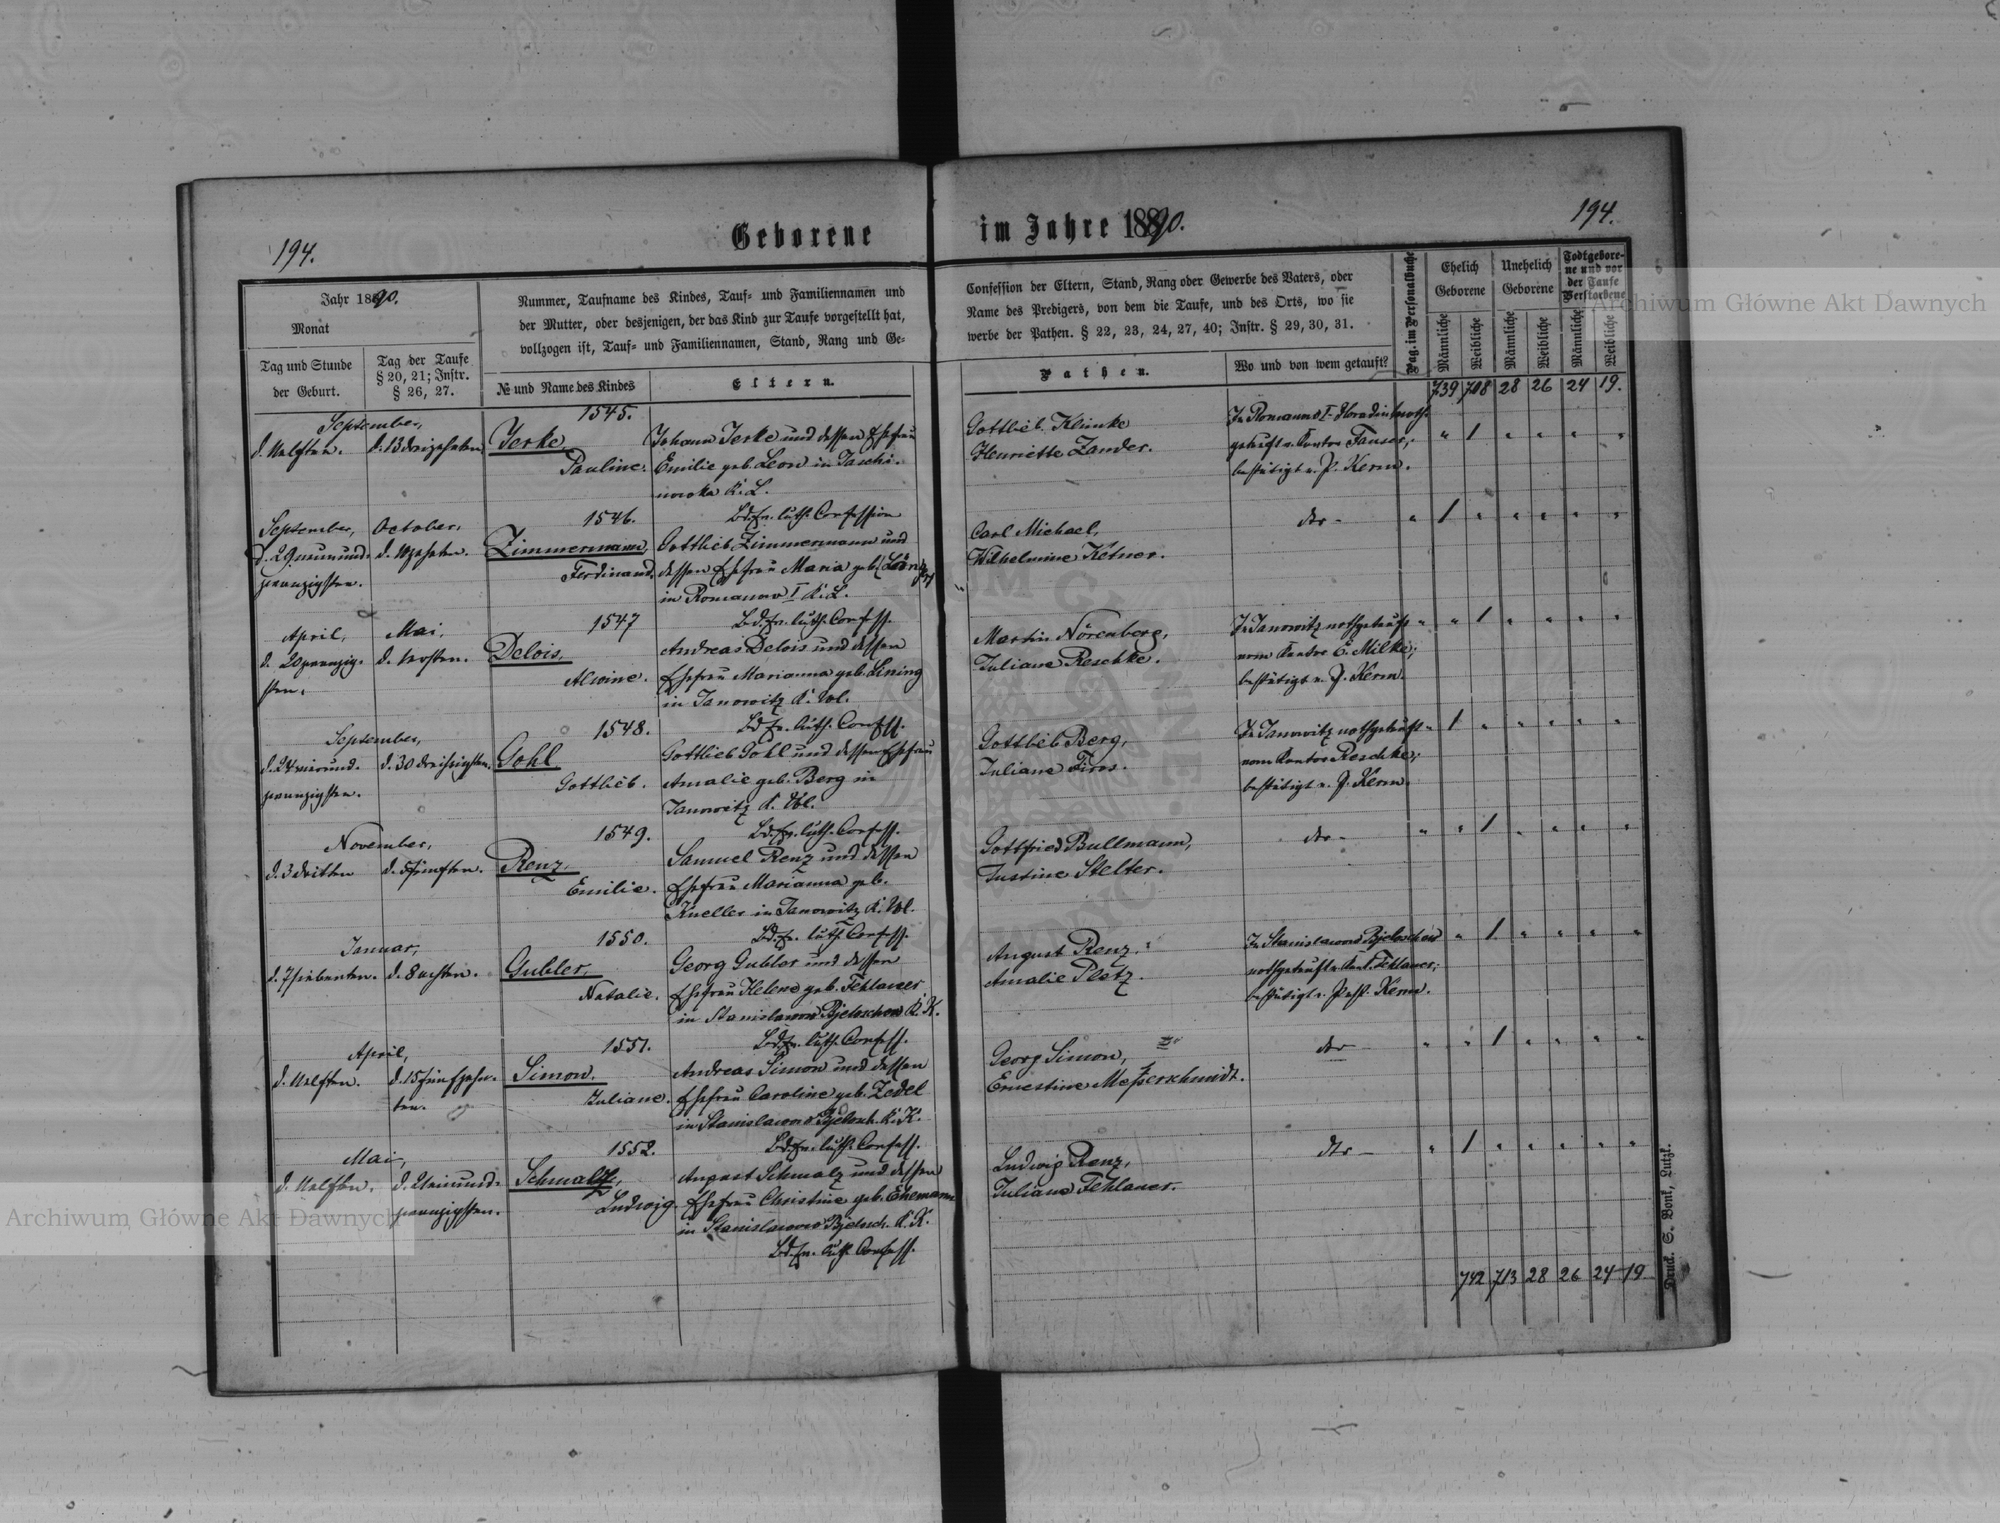 194.
Geborene
im Jahre 1890.
194.
Jahr 1890.
Monat
Tag und Stunde
der Geburt.
Tag der Taufe
§ 20, 21; Instr.
§ 26, 27.
Nummer, Taufname des Kindes, Tauf- und Familiennamen und
der Mutter, oder desjenigen, der das Kind zur Taufe vorgestellt hat,
vollzogen ist, Tauf- und Familiennamen, Stand, Rang und Ge-
№ und Name des Kindes
Eltern.
Confession der Eltern, Stand, Rang oder Gewerbe des Vaters, oder
Name des Predigers, von dem die Taufe, und des Orts, wo sie
werbe der Pathen. § 22, 23, 24, 27, 40; Instr. § 29, 30, 31.
Pathen.
Wo und von wem getauft?
Pag. im Personalbuche
Ehelich
Geborene
Unehelich
Geborene
Todtgebore-
ne und vor
der Taufe
Verstorbene
Männliche
Weibliche
Männliche
Weibliche
Männliche
Weibliche
739 708 28 26 24 19.
September,
d. 11 elften. d. 13 dreizehnten
1545.
Jerke
Pauline.
Johann Jerke und dessen Ehefrau
Emilie geb. Leon in Jaschi-
nowka K. L.
Bd. Ev. luth. Confession
Gottlieb Klinke
Henriette Zander.
In Romanow I-
getauft v. Kantor
bestätigt v. P. Kern.
September, October,
d. 29 neunund- d. 10 zehnten.
zwanzigsten.
1546.
Zimmermann
Ferdinand.
Gottlieb Zimmermann und
dessen Ehefrau Maria geb.
in Romanow I K. L.
Bd. Ev. luth. Confess.
Carl Michael,
Wilhelmine Ketner.
dto -
April, Mai,
d. 20 zwanzig- d. 1 ersten.
sten.
1547
Delois.
Alwine.
Andreas Delois und dessen
Ehefrau Marianna geb. Lening
in Janowitz K. Wl.
Bd. Ev. luth. Confess.
Martin Nörenberg,
Juliane Reschke.
In Janowitz nothgetauft
vom Kantor E. Milke;
bestätigt v. P. Kern.
September,
d. 24 vierund- d. 30 dreissigsten.
zwanzigsten.
1548.
Gohl
Gottlieb.
Gottlieb Gohl und dessen Ehefrau
Amalie geb. Berg in
Janowitz K. Wl.
Bd. Ev. luth. Confess.
Gottlieb Berg,
Juliane Firos.
In Janowitz nothgetauft
vom Kantor Reschke;
bestätigt v. P. Kern.
November,
d. 3 dritten d. 5 fünften.
1549.
Renz.
Emilie.
Samuel Renz und dessen
Ehefrau Marianna geb.
Kneller in Janowitz K. Wl.
Bd. Ev. luth. Confess.
Gottfried Bullmann,
Justine Stelter.
dto -
Januar,
d. 7 siebenten. d. 8 achten.
1550.
Gubler.
Natalie.
Georg Gubler und dessen
Ehefrau Helene geb. Fehlauer
in Stanislawow Bjeloschow K. K.
Bd. Ev. luth. Confess.
August Renz.
Amalie Pletz.
In Stanislawow Bjeloschow
nothgetauft v. Kant. Fehlauer;
bestätigt v. Past. Kern.
April,
d. 11 elften. d. 15 fünfzehn-
ten.
1551.
Simon.
Juliane.
Andreas Simon und dessen
Ehefrau Caroline geb. Zedel
in Stanislawow Bjelosch. K. K.
Bd. Ev. luth. Confess.
Georg Simon,
Ernestine Messerschmidt.
dto -
Mai,
d. 11 elften. d. 21 einund-
zwanzigsten.
1552.
Schmalz,
Ludwig.
August Schmalz und dessen
Ehefrau Christine geb. Ehemann
in Stanislawow Bjelosch. K. K.
Bd. Ev. luth. Confess.
Ludwig Renz,
Juliane Fehlauer.
dto -
742 713 28 26 24 19
Druck. S. Bonk, Lutzk.
Archiwum Główne Akt Dawnych
Archiwum Główne Akt Dawnych